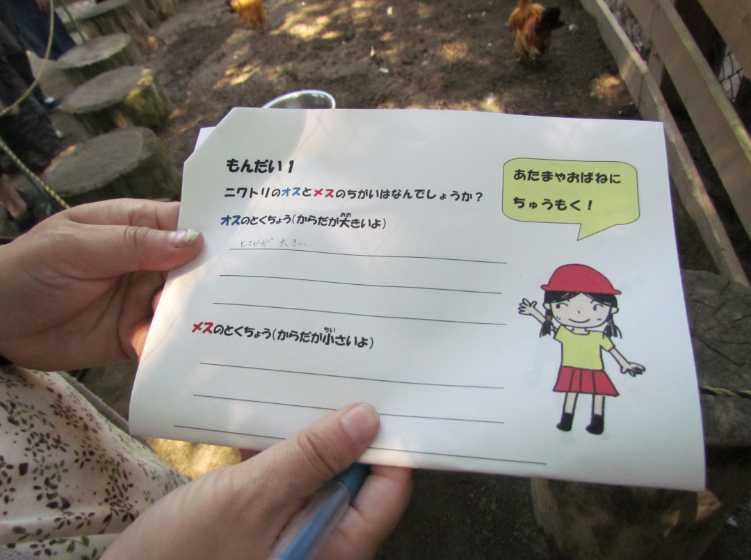 もんだい1
ニワトリのオスとメスのちがいはなんでしょうか？
あたまやおばねに
ちゅうもく！
オスのとくちょう(からだが大きいよ)
とさかが 大きい
メスのとくちょう(からだが小さいよ)